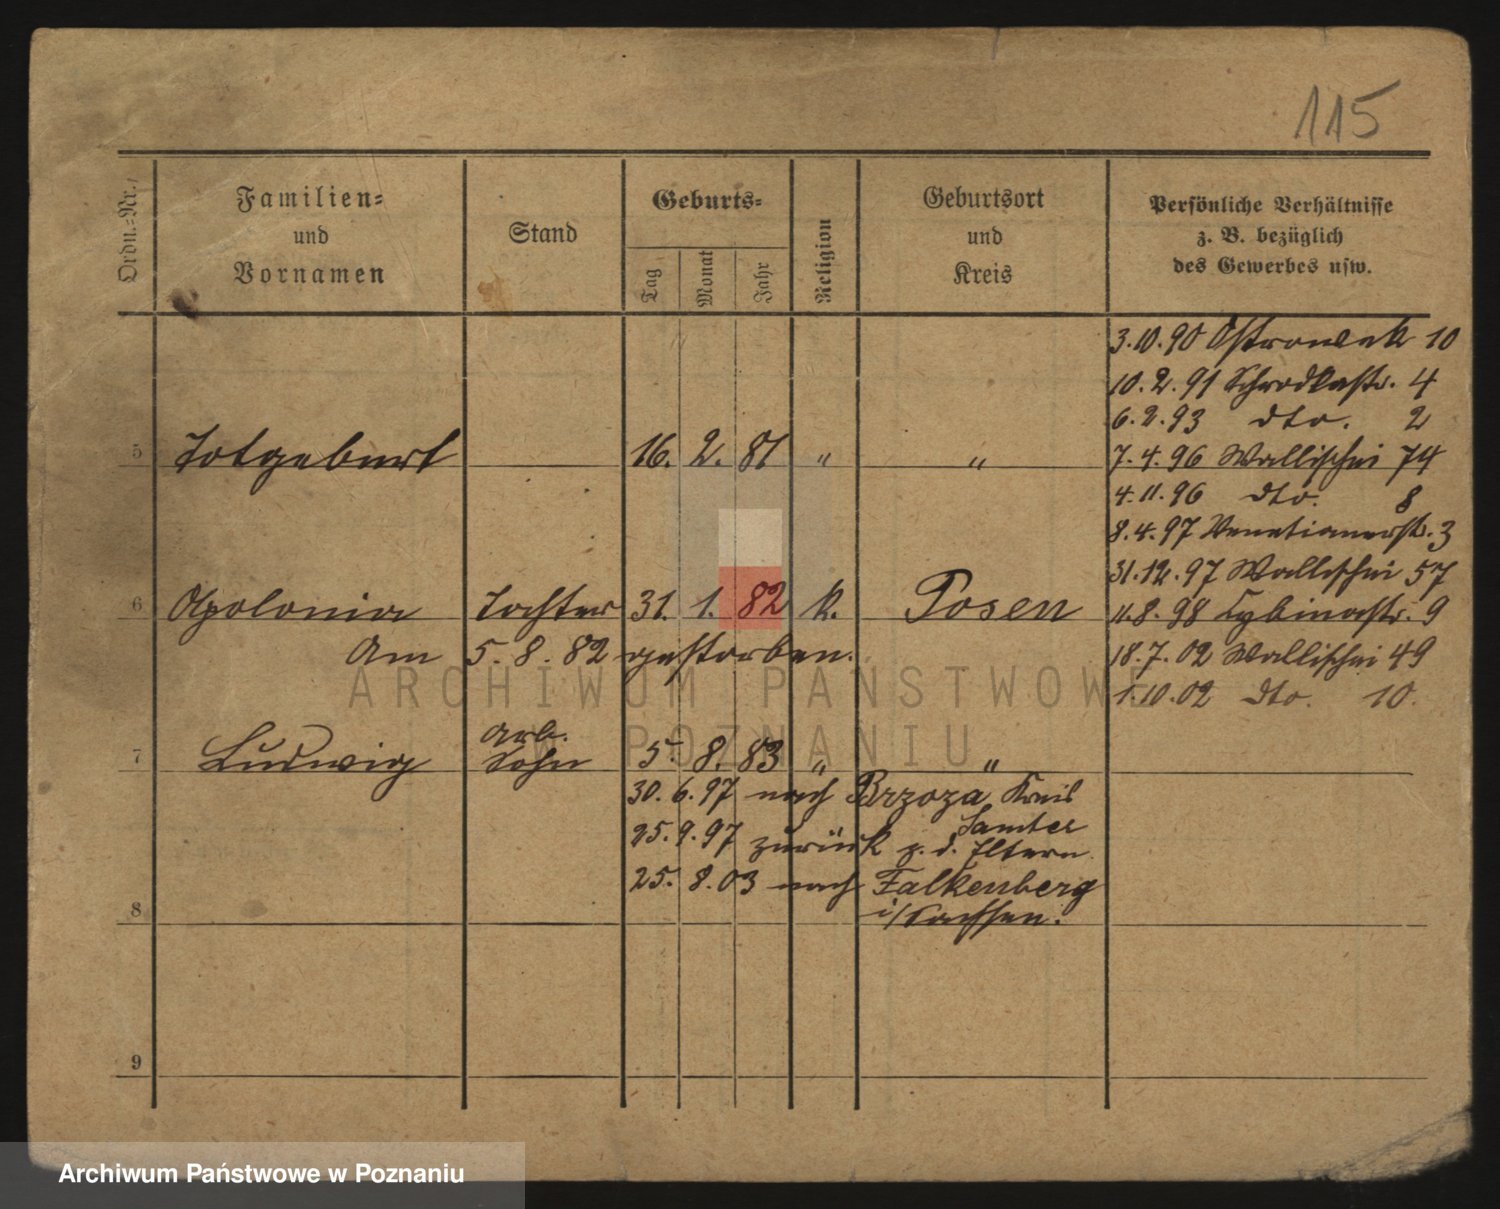 115
Ordn.-Nr.
Familien-
und
Vornamen
Stand
Geburts-
Tag
Monat
Jahr
Religion
Geburtsort
und
Kreis
Persönliche Verhältnisse
z. B. bezüglich
des Gewerbes usw.
3.10.90 Ostrowek 10
10.2.91 Schrodkastr. 4
6.2.93 dto. 2
5 Totgeburt 16. 2. 81 " "
7.4.96 Wallischei 74
4.11.96 dto. 8
8.4.97 Venetianerstr. 3
31.12.97 Wallischei 57
6 Apolonia Tochter 31. 1. 82 k. Posen
11.8.98 Cybinastr. 9
Am 5. 8. 82 gestorben.
18.7.02 Wallischei 49
1.10.02 dto. 10.
7 Ludwig Arb. Sohn 5. 8. 83 " "
30. 6. 97 nach Brzoza Kreis
Samter
25. 9. 97 zurück z. d. Eltern
25. 8. 03 nach Falkenberg
8 i/Sachsen.
9
ARCHIWUM PAŃSTWOWE
W POZNANIU
Archiwum Państwowe w Poznaniu